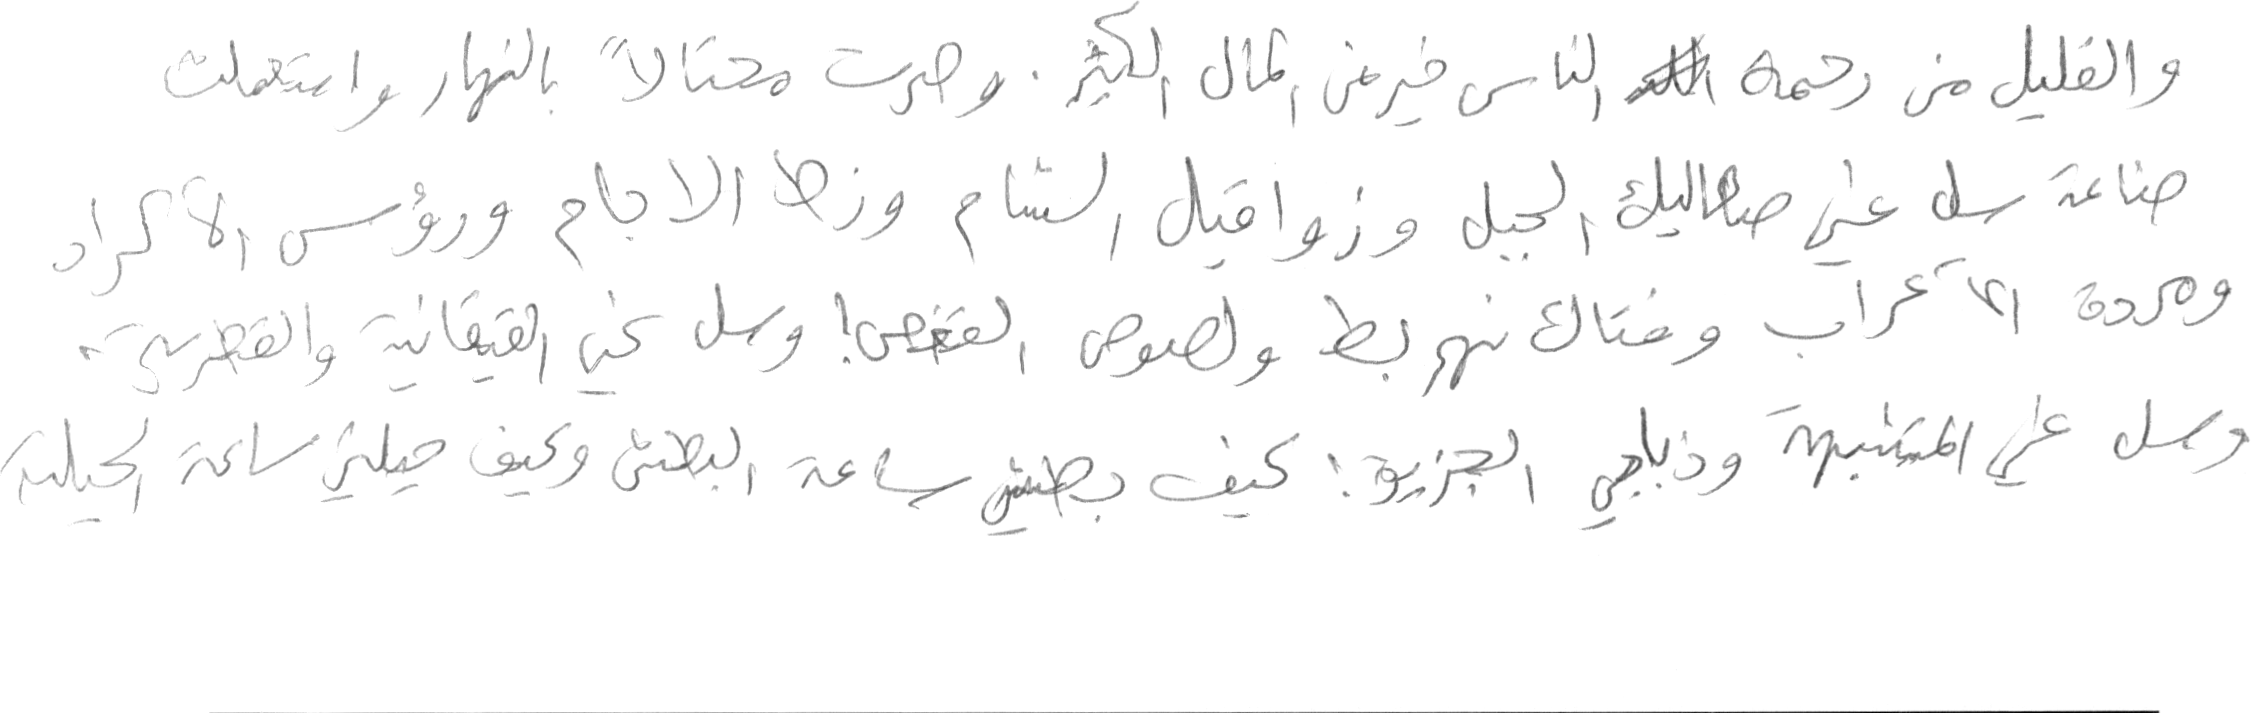 والقليل من رحمة الناس خير من المال الكثير. وصرت محتالاً بالنهار واستعملت
صناعة سل عني صعاليك الجبل وزواقيل الشام وزط الاجام ورؤس الأكراد
ومردة الأعراب وفتاك نهر بط ولصوص القفص! وسل عني القيقانية والقطرية،
وسل عني المتشبهة وذباحي الجزيرة: كيف بطشي ساعة البطش وكيف حيلتي ساعة الحيلة